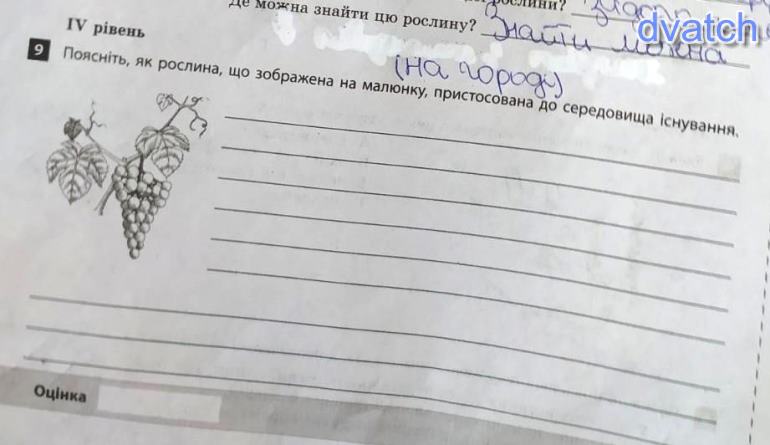 рослини? злата
Де можна знайти цю рослину? Знайти можна
dvatch
(на городі)
IV рівень
9 Поясніть, як рослина, що зображена на малюнку, пристосована до середовища існування.
Оцінка